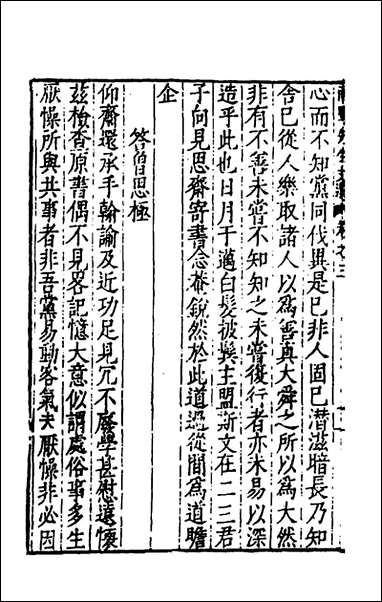 心而不知黨同伐異是已非人固已潛滋暗長乃知
舍已從人樂取諸人以爲善真大舜之所以爲大然
非有不善未嘗不知知之未嘗復行者亦未易以深
造乎此也日月于邁白髮披鬓主盟斯文在二三君
子向見思齋寄書念菴銳然於此道過從間爲道瞻
企
答曾思極
仰齋還承手翰諭及近功足見冗不廢學甚慰遠懷
茲檢查原書偶不見畧記憶大意似謂處俗事多生
厭懆所與共事者非吾黨易動客氣夫厭懆非必因